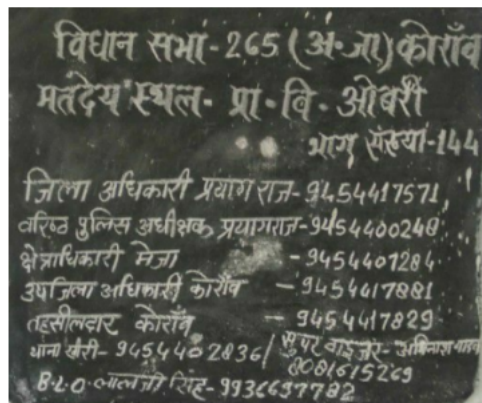 विधान सभा-265 (अ.जा) कोराँव
मतदेय स्थल- प्रा-वि-ओबरी
भाग संख्या-144
जिला अधिकारी प्रयागराज-9454417571
वरिष्ठ पुलिस अधीक्षक प्रयागराज-9454400248
क्षेत्राधिकारी मेजा -9454401284
उपजिला अधिकारी कोराँव -9454417881
तहसीलदार कोराँव -9454417829
थाना खीरी-9454402836/ सुपरवाइजर-अविनाश
8081615269
B.L.O.लालजी सिंह-9936697782